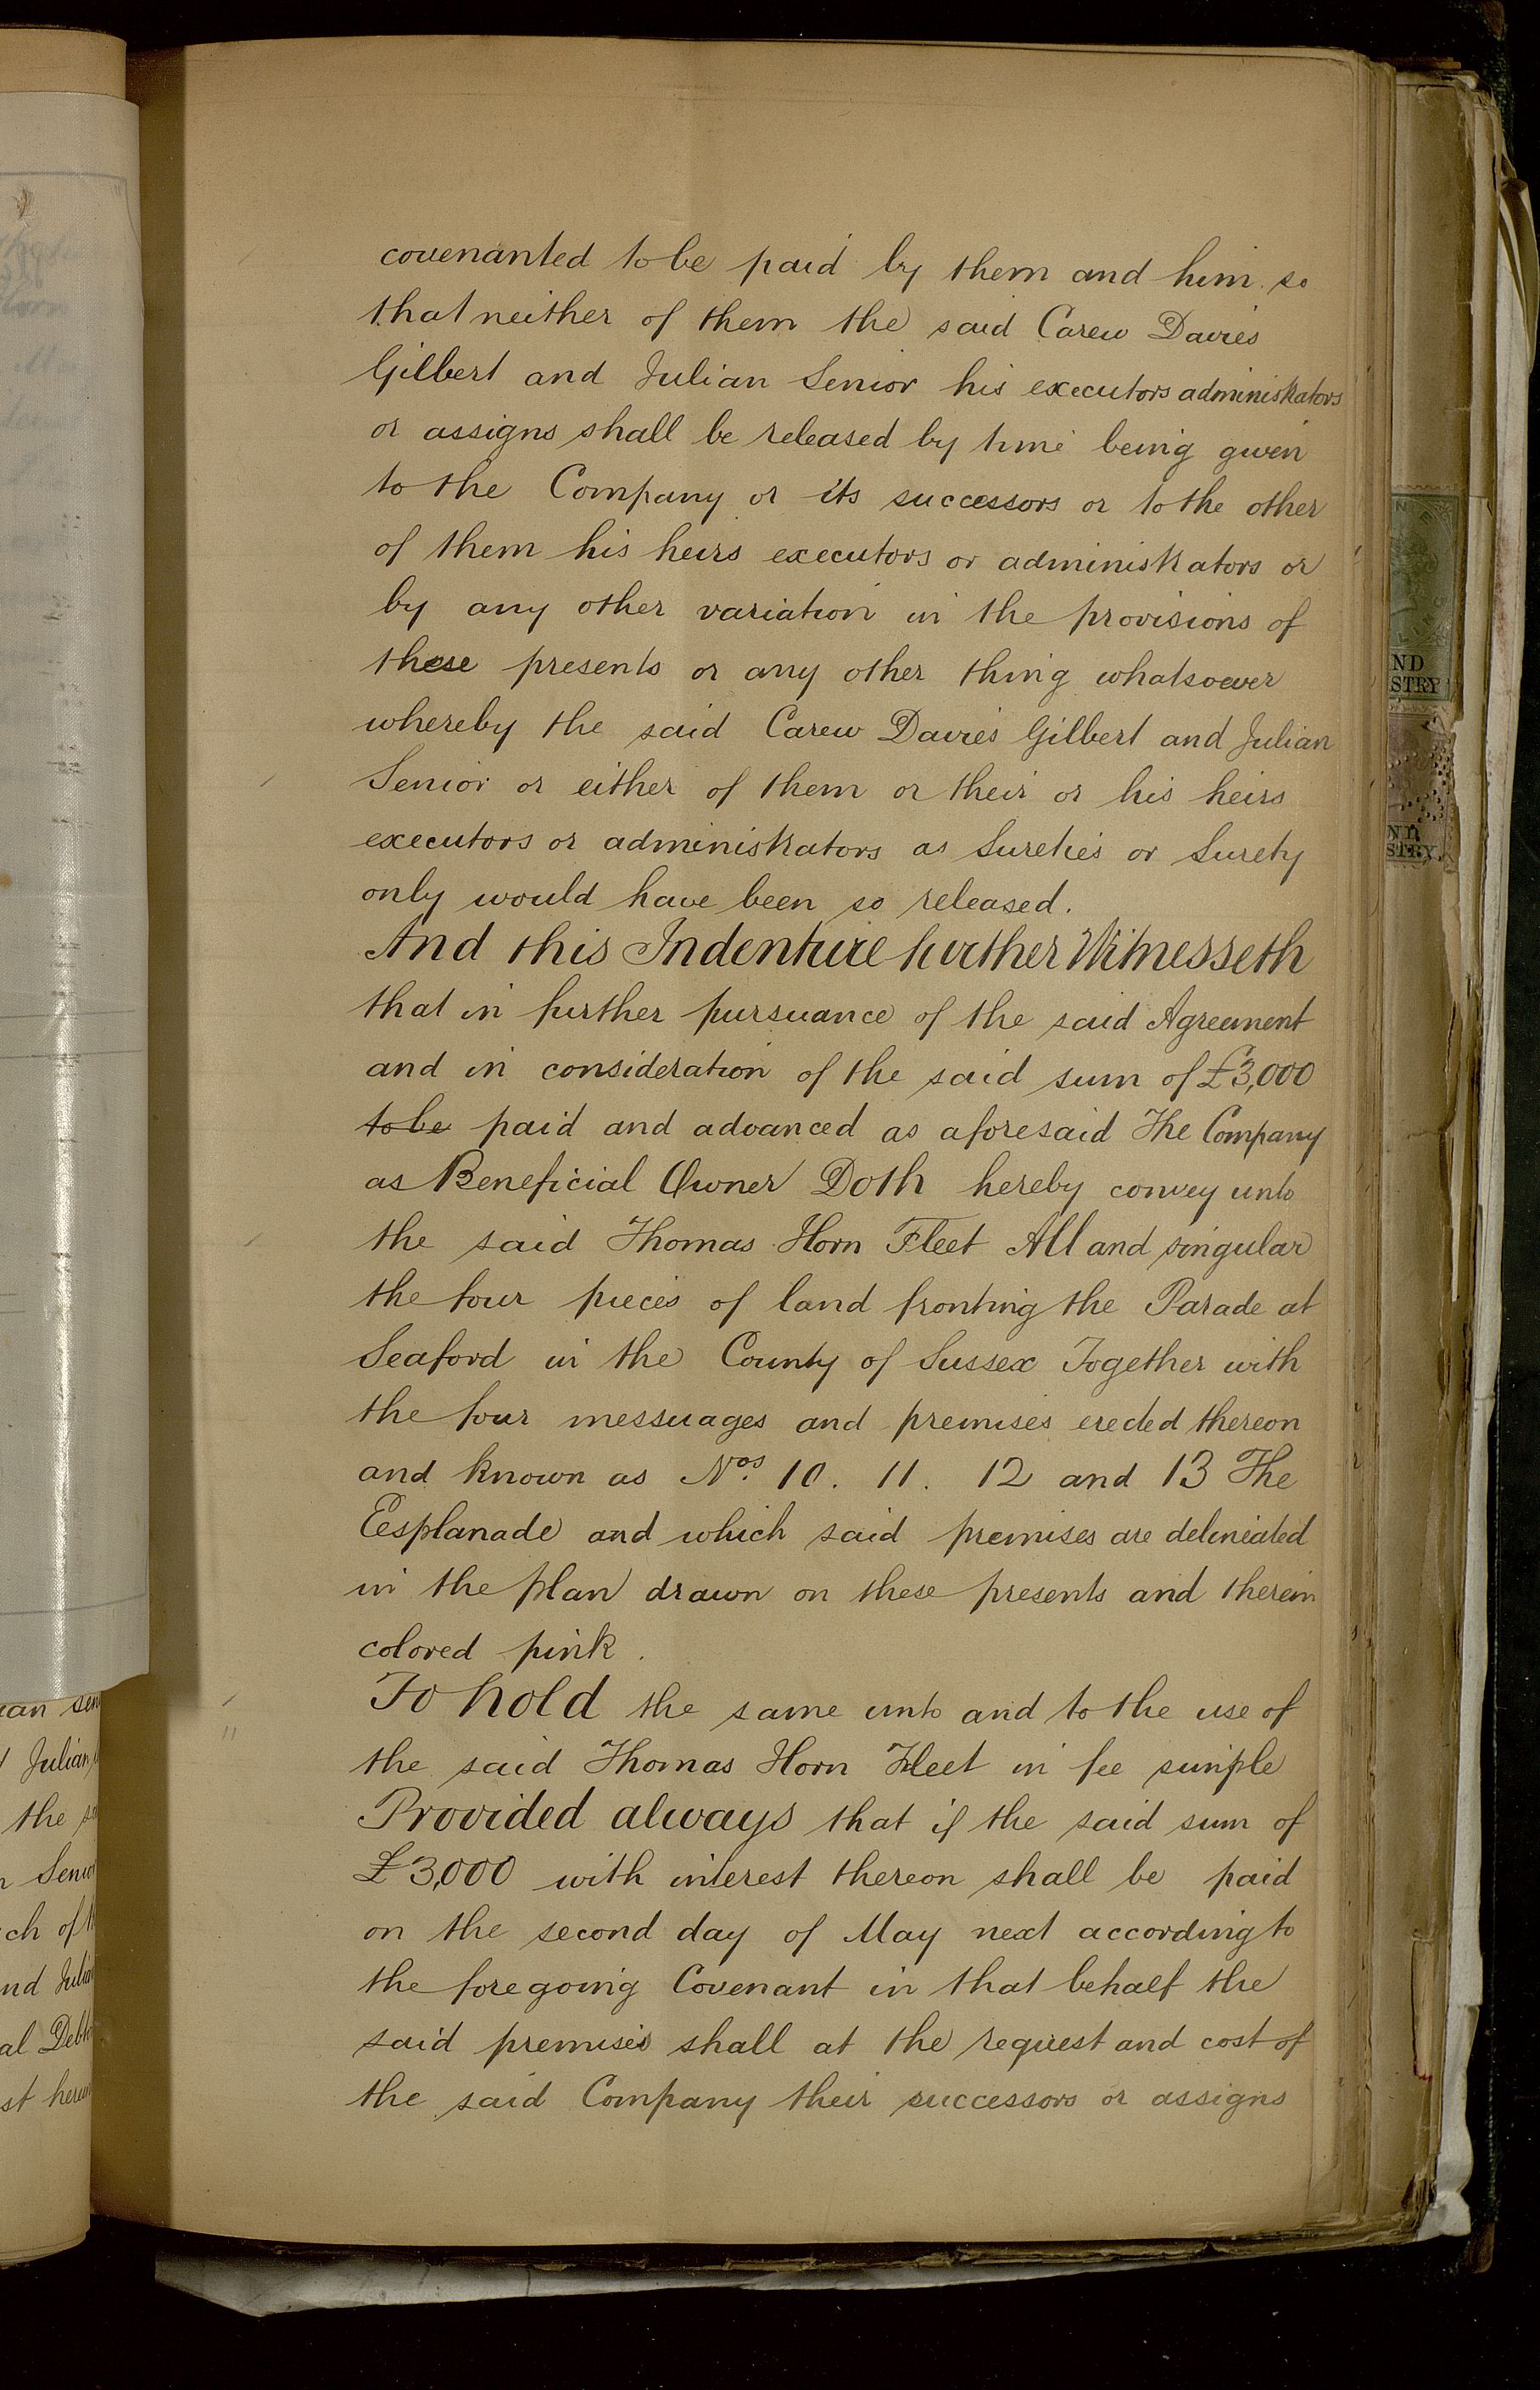 covenanted to be paid by them and him so
that neither of them the said Carew Davies
Gilbert and Julian Senior his executors administrators
or assigns shall be released by time being given
to the Company or its successors or to the other
of them his heirs executors or administrators or
by any other variation in the provisions of
these presents or any other thing whatsoever
whereby the said Carew Davies Gilbert and Julian
Senior or either of them or their or his heirs
executors or administrators as Sureties or Surety
only would have been so released.
And this Indenture further Witnesseth
that in further pursuance of the said Agreement
and in consideration of the said sum of £3,000
to be paid and advanced as aforesaid The Company
as Beneficial Owner Doth hereby convey unto
the said Thomas Horn Fleet All and singular
the four pieces of land fronting the Parade at
Seaford in the County of Sussex Together with
the four messuages and premises erected thereon
and known as Nos. 10. 11. 12 and 13 The
Eesplanade and which said premises are delineated
in the plan drawn on these presents and therein
colored pink.
To hold the same unto and to the use of
the said Thomas Horn Fleet in fee simple
Provided always that if the said sum of
£3,000 with interest thereon shall be paid
on the second day of May next according to
the foregoing Covenant in that behalf the
said premises shall at the request and cost of
the said Company their successors or assigns
Julian
the
Senior
ch of
nd Julian
al Debt
st
ND
STRY
ND
STRY